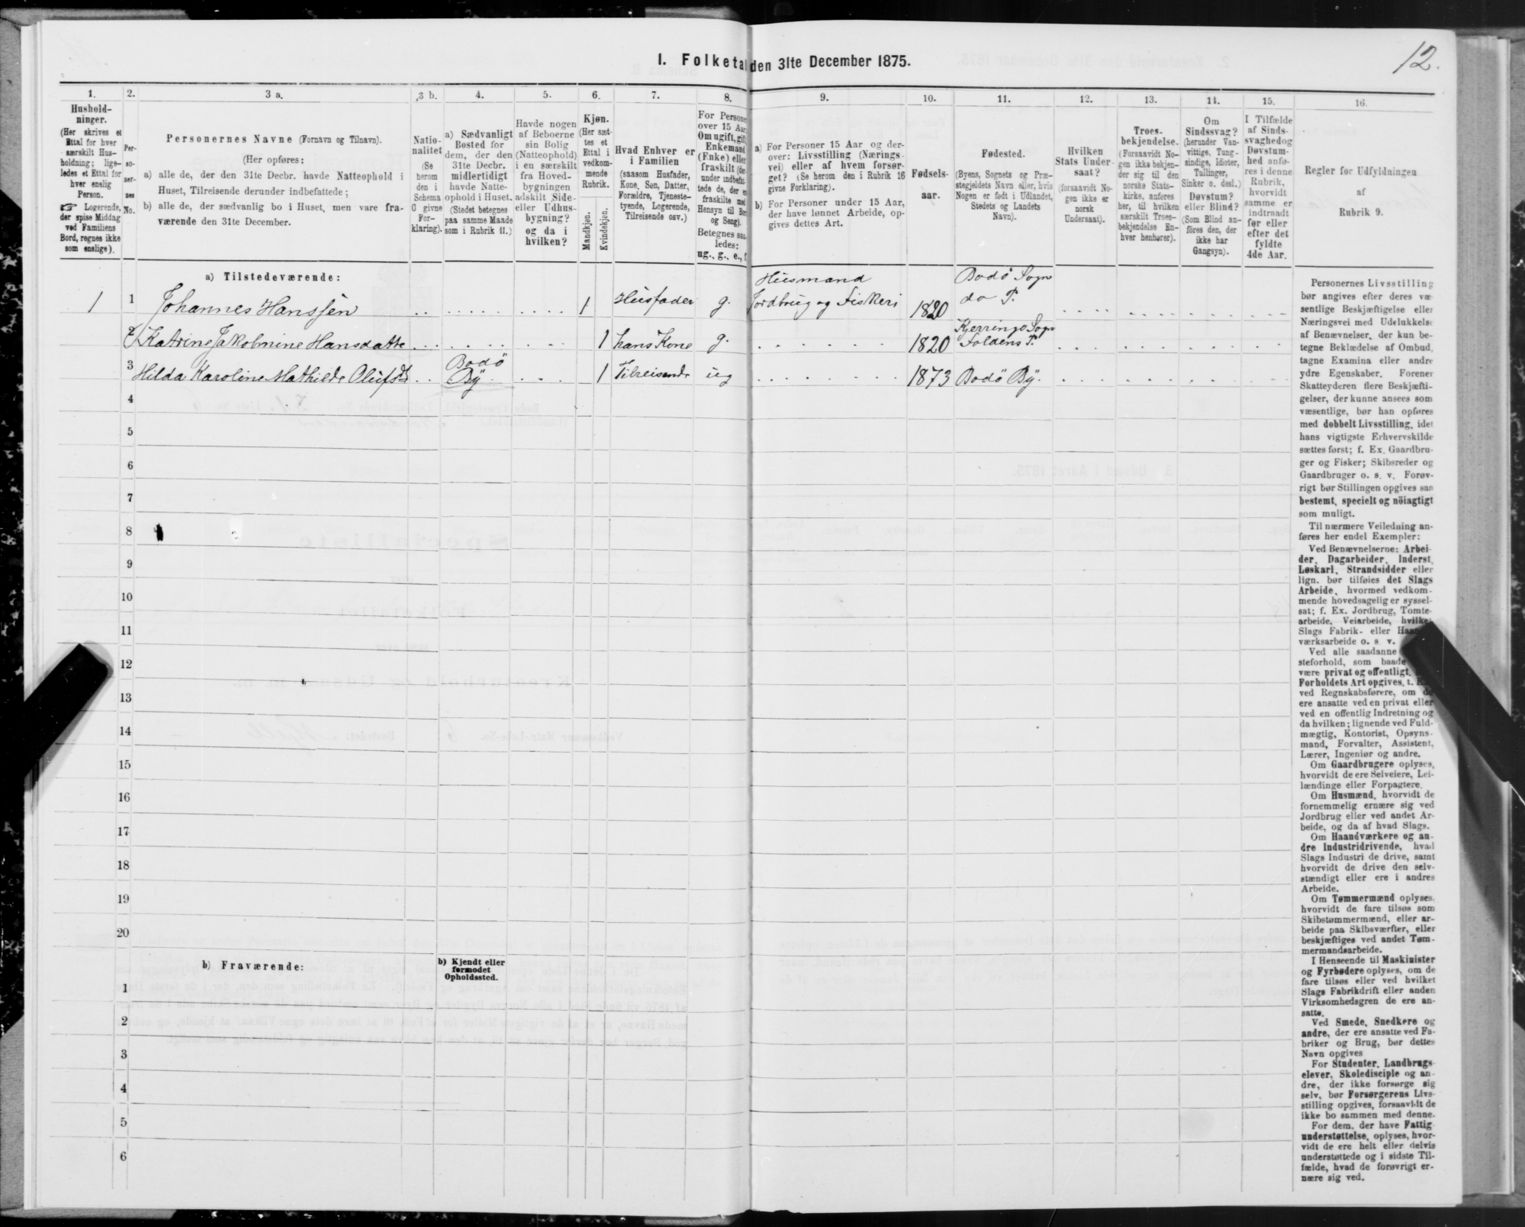 12.
I. Folketal den 31te December 1875.
1.
Hushold-
ninger.
(Her skrives et
Ettal for hver
særskilt Hus-
holdning; lige-
ledes et Ettal for
hver enslig
Person.
☞ Logerende,
der spise Middag
ved Familiens
Bord, regnes ikke
som enslige).
2.
Per-
so-
ner-
nes
No.
3 a.
Personernes Navne (Fornavn og Tilnavn).
(Her opføres:
a) alle de, der den 31te Decbr. havde Natteophold i
Huset, Tilreisende derunder indbefattede;
b) alle de, der sædvanlig bo i Huset, men vare fra-
værende den 31te December.
3 b.
Natio-
nalitet
(Se
herom
den i
Schema
O givne
For-
klaring).
4.
a) Sædvanligt
Bosted for
dem, der den
31te Decbr.
midlertidigt
havde Natte-
ophold i Huset.
(Stedet betegnes
paa samme Maade
som i Rubrik 11.)
5.
Havde nogen
af Beboerne
sin Bolig
(Natteophold)
i en særskilt
fra Hoved-
bygningen
adskilt Side-
eller Udhus-
bygning?
og da i
hvilken?
6.
Kjøn.
(Her sæt-
tes et
Ettal i
vedkom-
mende
Rubrik.
Mandkjøn.
Kvindekjøn.
7.
Hvad Enhver er
i Familien
(saasom Husfader,
Kone, Søn, Datter,
Forældre, Tjeneste-
tyende, Logerende,
Tilreisende osv.)
8.
For Personer
over 15 Aar
Om ugift, gift,
Enkemand
(Enke) eller
fraskilt (der-
under indbefat-
tede de, der er
fraskilte med
Hensyn til Bord
og Seng).
Betegnes saa-
ledes:
ug., g., e., f.
9.
a) For Personer 15 Aar og der-
over: Livsstilling (Nærings-
vei) eller af hvem forsør-
get? (Se herom den i Rubrik 16
givne Forklaring).
b) For Personer under 15 Aar,
der have lønnet Arbeide, op-
gives dettes Art.
10.
Fødsels-
aar.
11.
Fødested.
(Byens, Sognets og Præ-
stegjeldets Navn eller, hvis
Nogen er født i Udlandet,
Stedets og Landets
Navn).
12.
Hvilken
Stats Under-
saat?
(forsaavidt No-
gen ikke er
norsk
Undersaat).
13.
Troes-
bekjendelse.
(Forsaavidt No-
gen ikke bekjen-
der sig til den
norske Stats-
kirke, anføres
her, til hvilken
særskilt Troes-
bekjendelse En-
hver henhører).
14.
Om
Sindssvag?
(herunder Van-
vittige, Tung-
sindige, Idioter,
Tullinger,
Sinker o. desl.)
Døvstum?
eller Blind?
(Som Blind an-
føres den, der
ikke har
Gangsyn).
15.
I Tilfælde
af Sinds-
svaghed og
Døvstum-
hed anfø-
res i denne
Rubrik,
hvorvidt
samme er
indtraadt
før eller
efter det
fyldte
4de Aar.
16.
Regler for Udfyldningen
af
Rubrik 9.
a) Tilstedeværende:
1 1 Johannes Hanssen 1 Husfader g. Husmand Jordbrug og Fiskeri 1820 Bodø Sogn do P.
2 Katrine Jakobmine Hansdatte 1 hans Kone g. 1820 Kjerringø Sogn Foldens P.
3 Hilda Karoline Mathilde Olufsdt Bodø By 1 Tilreisende ug 1873 Bodø By.
4
5
6
7
8
9
10
11
12
13
14
15
16
17
18
19
20
b) Fraværende:
b) Kjendt eller
formodet
Opholdssted.
1
2
3
4
5
6
Personernes Livsstilling
bør angives efter deres væ-
sentlige Beskjæftigelse eller
Næringsvei med Udelukkelse
af Benævnelser, der kun be-
tegne Beklædelse af Ombud,
tagne Examina eller andre
ydre Egenskaber. Forener
Skatteyderen flere Beskjæfti-
gelser, der kunne ansees som
væsentlige, bør han opføres
med dobbelt Livsstilling, idet
hans vigtigste Erhvervskilde
sættes først; f. Ex. Gaardbru-
ger og Fisker; Skibsreder og
Gaardbruger o. s. v. Forøv-
rigt bør Stillingen opgives saa
bestemt, specielt og nöiagtigt
som muligt.
Til nærmere Veiledning an-
føres her endel Exempler:
Ved Benævnelserne: Arbei-
der, Dagarbeider, Inderst,
Løskarl, Strandsidder eller
lign. bør tilføies det Slags
Arbeide, hvormed vedkom-
mende hovedsagelig er syssel-
sat; f. Ex. Jordbrug, Tomte-
arbeide, Veiarbeide, hvilket
Slags Fabrik- eller Haand-
værksarbeide o. s. v.
Ved alle saadanne
steforhold, som baade
være privat og offentligt,
Forholdets Art opgives, t. Ex.
ved Regnskabsførere, om de
ere ansatte ved en privat eller
ved en offentlig Indretning og
da hvilken; lignende ved Fuld-
mægtig, Kontorist, Opsyns-
mand, Forvalter, Assistent,
Lærer, Ingeniør og andre.
Om Gaardbrugere oplyses,
hvorvidt de ere Selveiere, Lei-
lændinge eller Forpagtere.
Om Husmænd, hvorvidt de
fornemmelig ernære sig ved
Jordbrug eller ved andet Ar-
beide, og da af hvad Slags.
Om Haandværkere og an-
dre Industridrivende, hvad
Slags Industri de drive, samt
hvorvidt de drive den selv-
stændigt eller ere i andres
Arbeide.
Om Tømmermænd oplyses,
hvorvidt de fare tilsøs som
Skibstømmermænd, eller ar-
beide paa Skibsværfter, eller
beskjæftiges ved andet Tøm-
mermandsarbeide.
I Henseende til Maskinister
og Fyrbødere oplyses, om de
fare tilsøs eller ved hvilket
Slags Fabrikdrift eller anden
Virksomhedsgren de ere an-
satte.
Ved Smede, Snedkere og
andre, der ere ansatte ved Fa-
briker og Brug, bør dettes
Navn opgives
For Studenter, Landbrugs-
elever, Skoledisciple og an-
dre, der ikke forsørge sig
selv, bør Forsørgerens Livs-
stilling opgives, forsaavidt de
ikke bo sammen med denne.
For dem, der have Fattig-
understøttelse, oplyses, hvor-
vidt de ere helt eller delvis
understøttede og i sidste Til-
fælde, hvad de forøvrigt er-
nære sig ved.